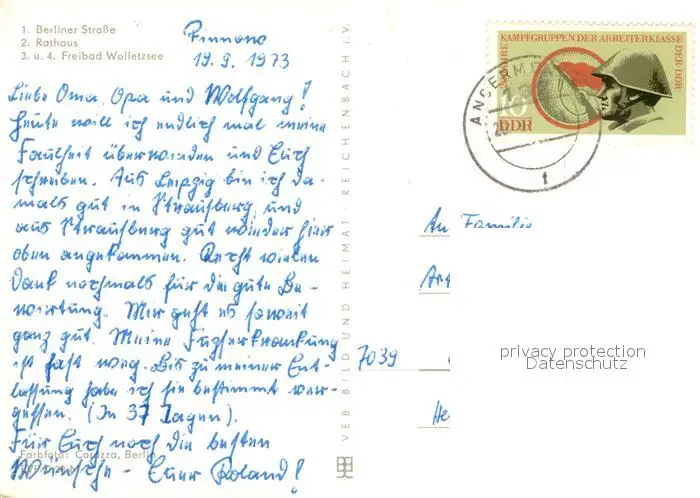 1. Berliner Straße
2. Rathaus
3. u. 4. Freibad Wolletzsee
Pinnow
19.9.1973
Liebe Oma, Opa und Wolfgang!
Heute will ich endlich mal meine
Faulheit überwinden und Euch
schreiben. Aus Leipzig bin ich da-
mals gut in Straußberg, und
aus Straußberg gut wieder hier
oben angekommen. Recht vielen
Dank nochmals für die gute Be-
wirtung. Mir geht es soweit
ganz gut. Meine
ist fast weg. Bis zu meiner Ent-
lassung habe ich sie bestimmt ver-
gessen. (In 37 Tagen).
Für Euch noch die besten
Wünsche - Euer Roland!
Farbfoto: Corazza, Berlin
VEB BILD UND HEIMAT · REICHENBACH i. V.
20 JAHRE KAMPFGRUPPEN DER ARBEITERKLASSE DER DDR
10
DDR
ANGERM
An Familie
7039
privacy protection
Datenschutz